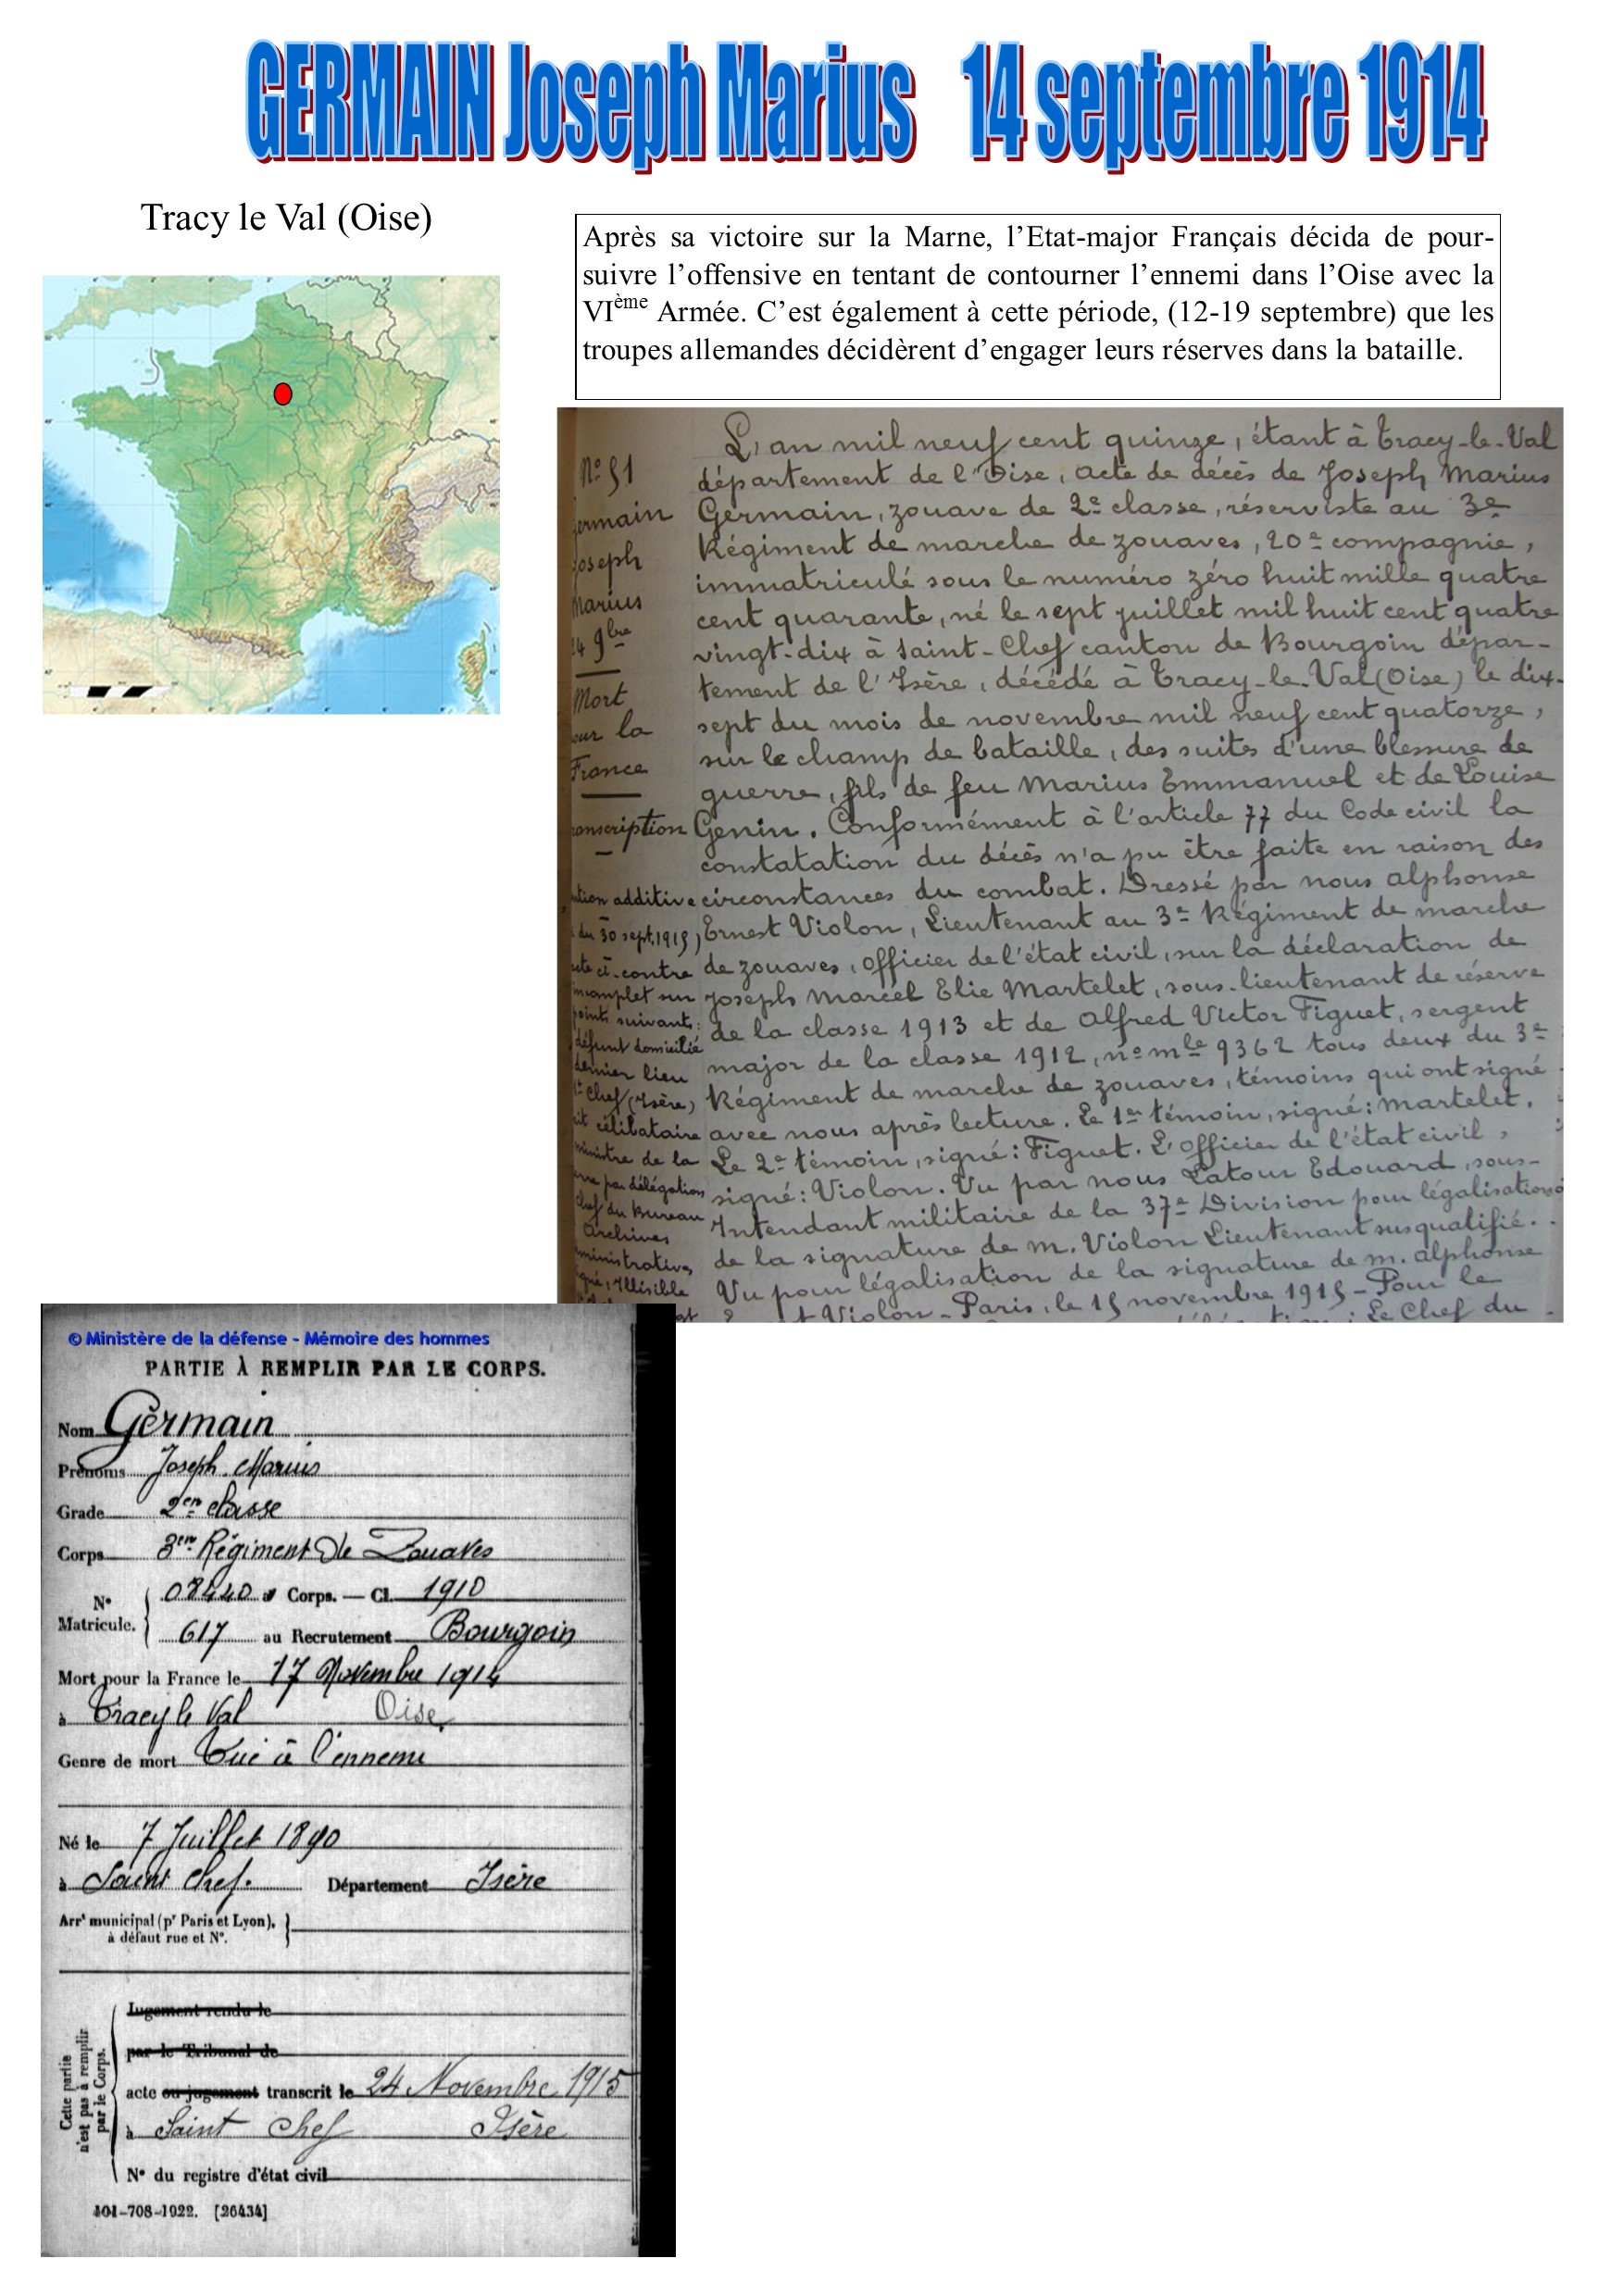 GERMAIN Joseph Marius 14 septembre 1914
Tracy le Val (Oise)
Après sa victoire sur la Marne, l’Etat-major Français décida de pour-
suivre l’offensive en tentant de contourner l’ennemi dans l’Oise avec la
VIème Armée. C’est également à cette période, (12-19 septembre) que les
troupes allemandes décidèrent d’engager leurs réserves dans la bataille.
N° 51
Germain
Joseph
Marius
24 9bre
Mort
our la
France
anscription
ntion additive
du 30 sept. 1915)
cte ci-contre
incomplet sur
points suivants:
défunt domicilié
dernier lieu
St Chef (Isère)
it célibataire
ministre de la
par délégation
Chef du Bureau
Archives
ministratives
gné, Illisible
L'an mil neuf cent quinze, étant à Tracy-le-Val
département de l'Oise, acte de décès de Joseph Marius
Germain, zouave de 2e classe, réserviste au 3e
Régiment de marche de zouaves, 20e compagnie,
immatriculé sous le numéro zéro huit mille quatre
cent quarante, né le sept juillet mil huit cent quatre
vingt-dix à Saint-Chef canton de Bourgoin dépar-
tement de l'Isère, décédé à Tracy-le-Val (Oise) le dix-
sept du mois de novembre mil neuf cent quatorze,
sur le champ de bataille, des suites d'une blessure de
guerre, fils de feu Marius Emmanuel et de Louise
Genin. Conformément à l'article 77 du Code civil la
constatation du décès n'a pu être faite en raison des
circonstances du combat. Dressé par nous Alphonse
Ernest Violon, Lieutenant au 3e Régiment de marche
de zouaves, officier de l'état civil, sur la déclaration de
Joseph Marcel Elie Martelet, sous-lieutenant de réserve
de la classe 1913 et de Alfred Victor Figuet, sergent
major de la classe 1912, n° mle 9362 tous deux du 3e
Régiment de marche de zouaves, témoins qui ont signé
avec nous après lecture. Le 1er témoin, signé: Martelet.
Le 2e témoin, signé: Figuet. L'officier de l'état civil,
signé: Violon. Vu par nous Latour Edouard, sous-
Intendant militaire de la 37e Division pour légalisation
de la signature de M. Violon Lieutenant susqualifié.
Vu pour légalisation de la signature de M. Alphonse
Violon - Paris, le 15 novembre 1915 - Pour le
Le Chef du
© Ministère de la défense - Mémoire des hommes
PARTIE À REMPLIR PAR LE CORPS.
Nom Germain
Prénoms Joseph Marius
Grade 2em classe
Corps 3em Régiment De Zouaves
N° Matricule. 08440 au Corps. — Cl. 1910
617 au Recrutement Bourgoin
Mort pour la France le 17 Novembre 1914
à Tracy le Val Oise
Genre de mort Tué à l'ennemi
Né le 7 Juillet 1890
à Saint Chef. Département Isère
Arrt municipal (pr Paris et Lyon),
à défaut rue et N°.
Cette partie
n'est pas à remplir
par le Corps.
Jugement rendu le
par le Tribunal de
acte ou jugement transcrit le 24 Novembre 1915
à Saint Chef Isère
N° du registre d'état civil
101-708-1922. [26434]